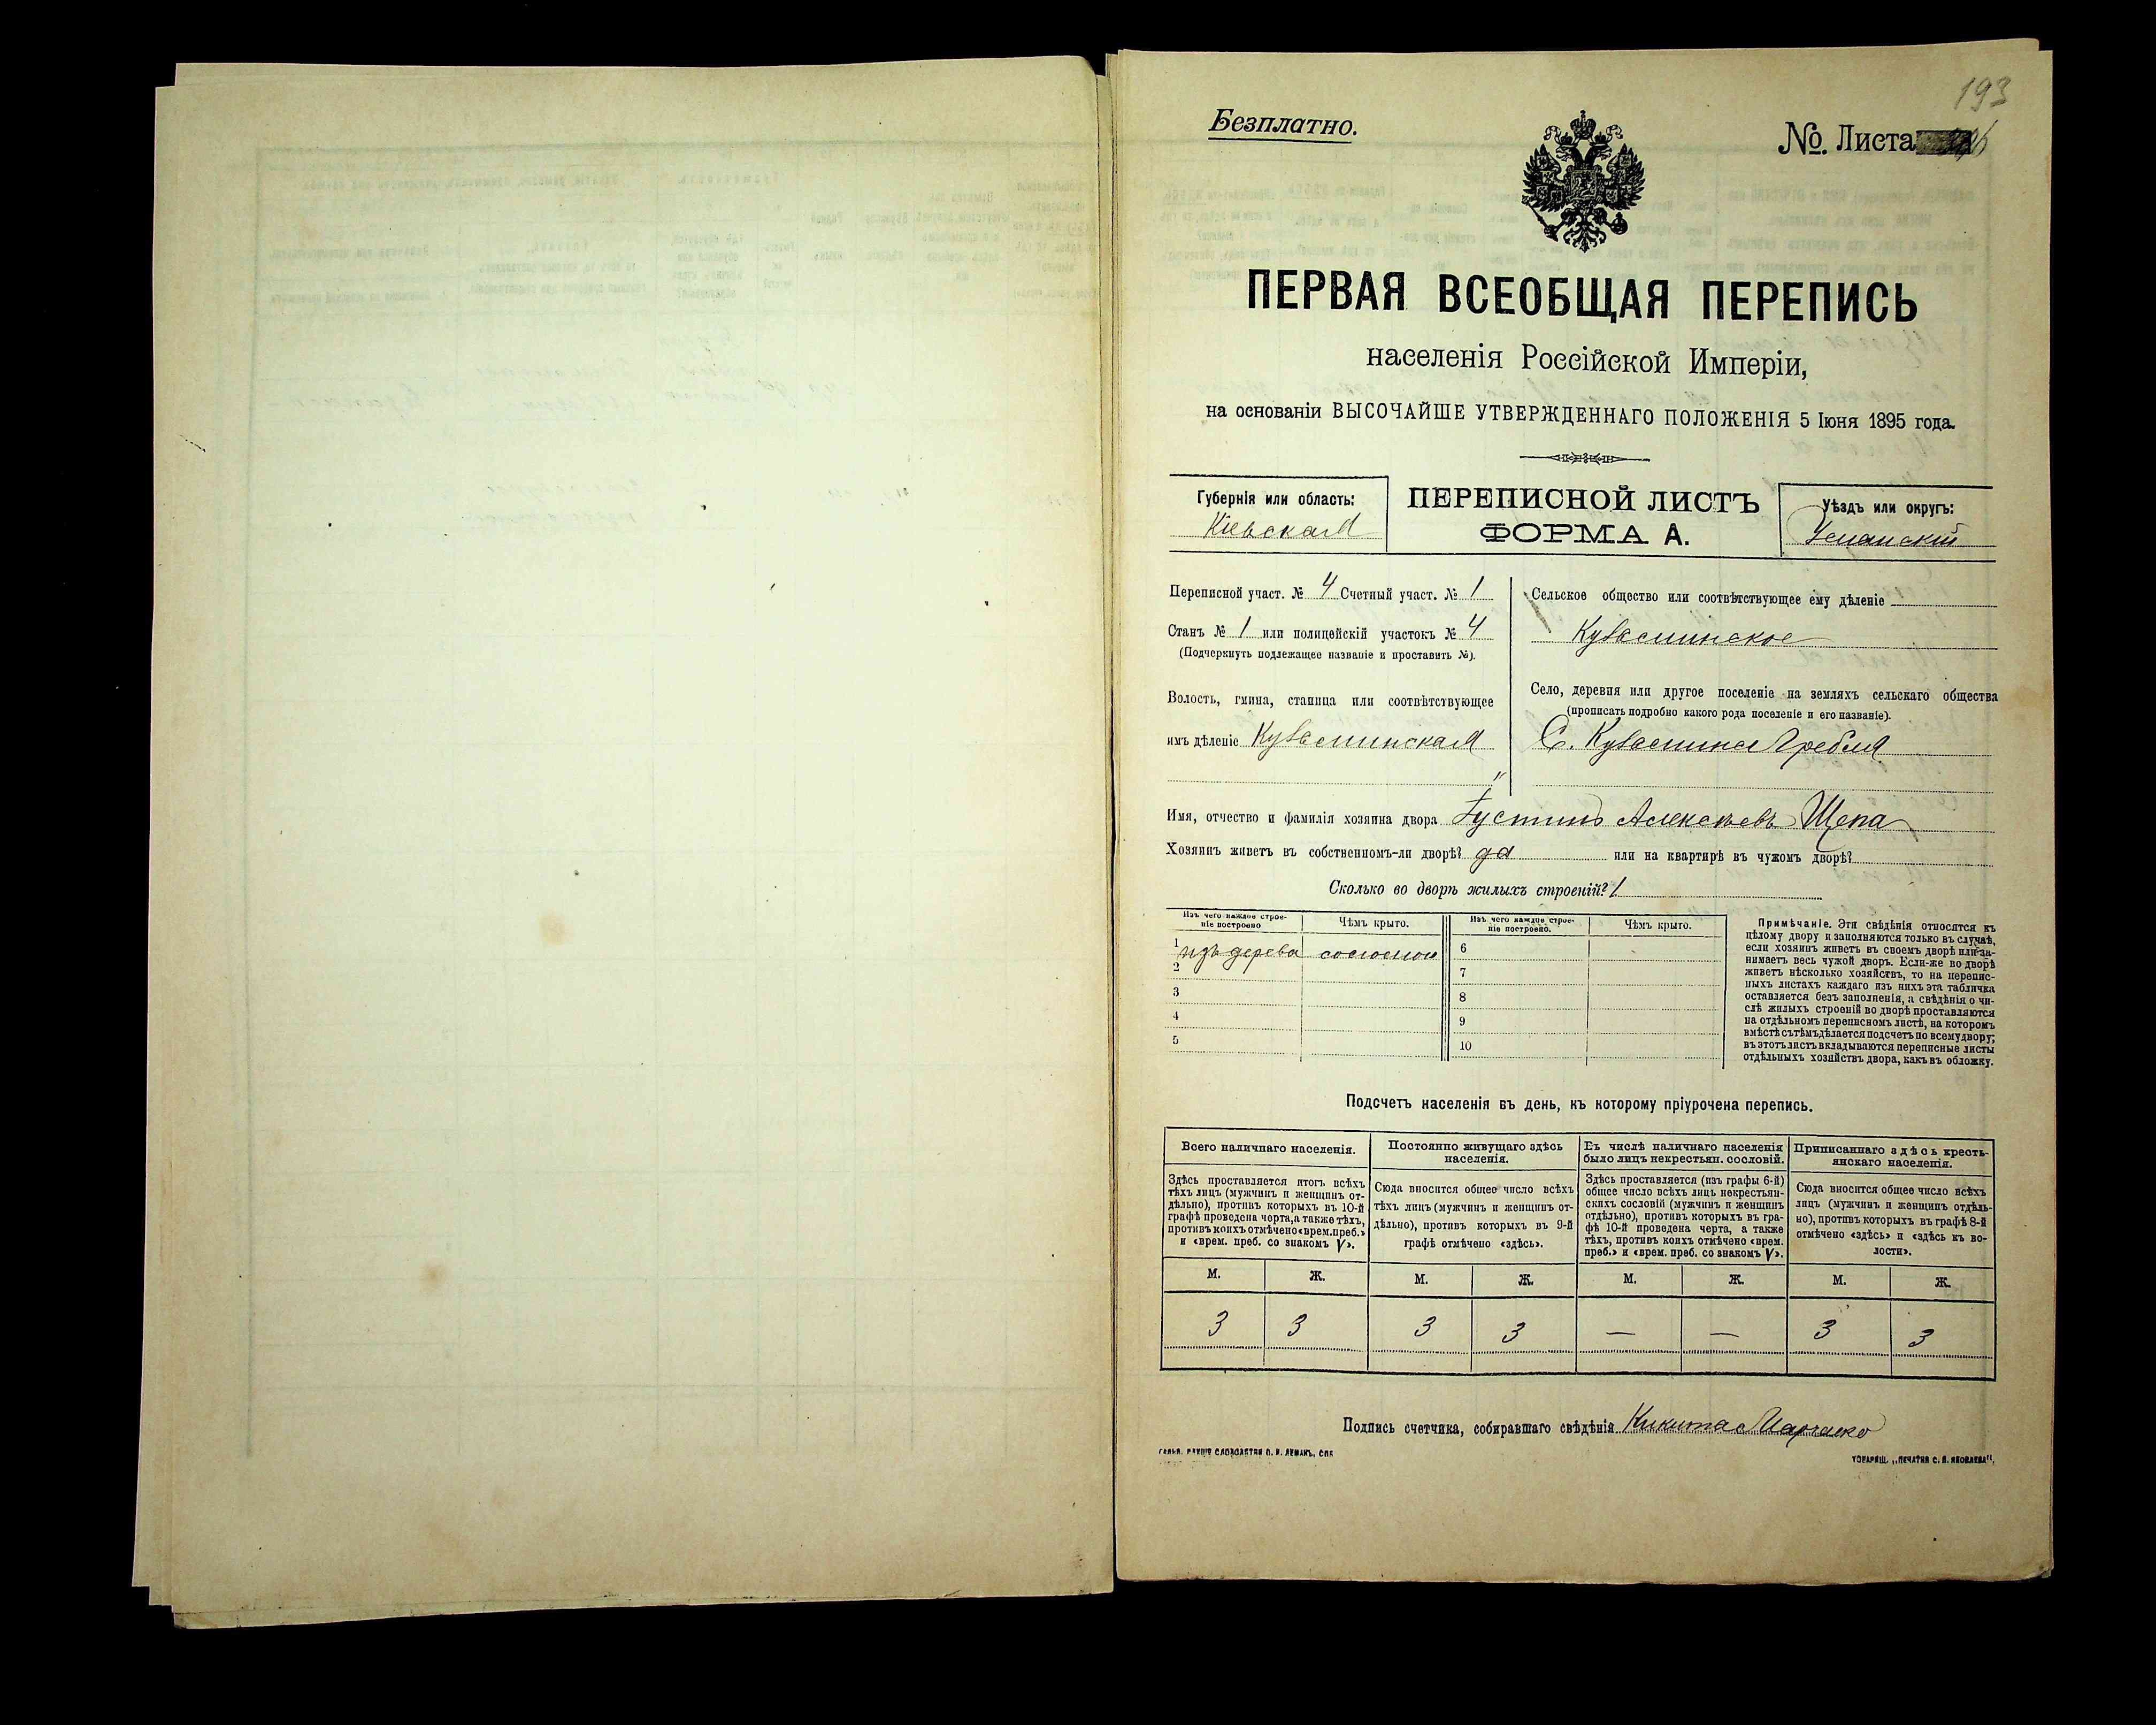 193
Безплатно.
№. Листа
ПЕРВАЯ ВСЕОБЩАЯ ПЕРЕПИСЬ
населенія Россійской Имперіи,
на основаніи ВЫСОЧАЙШЕ УТВЕРЖДЕННАГО ПОЛОЖЕНІЯ 5 Іюня 1895 года.
Губернія или область:
Кіевская
ПЕРЕПИСНОЙ ЛИСТЪ
ФОРМА А.
Уѣздъ или округъ:
Уманскій
Переписной участ. № 4 Счетный участ. № 1
Станъ № 1 или полицейскій участокъ № 4
(Подчеркнуть подлежащее названіе и проставить №).
Волость, гмина, станица или соотвѣтствующее
имъ дѣленіе Кузьминская
Сельское общество или соотвѣтствующее ему дѣленіе
Кузьминское
Село, деревня или другое поселеніе на земляхъ сельскаго общества
(прописать подробно какого рода поселеніе и его названіе).
С. Кузьмина Гребля
Имя, отчество и фамилія хозяина двора Іустинъ Алексѣевъ Щепа
Хозяинъ живетъ въ собственномъ-ли дворѣ? да или на квартирѣ въ чужомъ дворѣ?
Сколько во дворѣ жилыхъ строеній? 1
Изъ чего каждое строеніе построено
Чѣмъ крыто.
Изъ чего каждое строеніе построено.
Чѣмъ крыто.
1 изъ дерева соломою
2
3
4
5
6
7
8
9
10
Примѣчаніе. Эти свѣдѣнія относятся къ
цѣлому двору и заполняются только въ случаѣ,
если хозяинъ живетъ въ своемъ дворѣ или за-
нимаетъ весь чужой дворъ. Если-же во дворѣ
живетъ нѣсколько хозяйствъ, то на перепис-
ныхъ листахъ каждаго изъ нихъ эта табличка
оставляется безъ заполненія, а свѣдѣнія о чи-
слѣ жилыхъ строеній во дворѣ проставляются
на отдѣльномъ переписномъ листѣ, на которомъ
вмѣстѣ съ тѣмъ дѣлается подсчетъ по всему двору;
въ этотъ листъ вкладываются переписные листы
отдѣльныхъ хозяйствъ двора, какъ въ обложку.
Подсчетъ населенія въ день, къ которому пріурочена перепись.
Всего наличнаго населенія.
Здѣсь проставляется итогъ всѣхъ
тѣхъ лицъ (мужчинъ и женщинъ от-
дѣльно), противъ которыхъ въ 10-й
графѣ проведена черта, а также тѣхъ,
противъ коихъ отмѣчено «врем. преб.»
и «врем. преб. со знакомъ V».
Постоянно живущаго здѣсь
населенія.
Сюда вносится общее число всѣхъ
тѣхъ лицъ (мужчинъ и женщинъ от-
дѣльно), противъ которыхъ въ 9-й
графѣ отмѣчено «здѣсь».
Въ числѣ наличнаго населенія
было лицъ некрестьян. сословій.
Здѣсь проставляется (изъ графы 6-й)
общее число всѣхъ лицъ некрестьян-
скихъ сословій (мужчинъ и женщинъ
отдѣльно), противъ которыхъ въ гра-
фѣ 10-й проведена черта, а также
тѣхъ, противъ коихъ отмѣчено «врем.
преб.» и «врем. преб. со знакомъ V».
Приписаннаго здѣсь кресть-
янскаго населенія.
Сюда вносится общее число всѣхъ
лицъ (мужчинъ и женщинъ отдѣль-
но), противъ которыхъ въ графѣ 8-й
отмѣчено «здѣсь» и «здѣсь къ во-
лости».
М. Ж. М. Ж. М. Ж. М. Ж.
3 3 3 3 — — 3 3
Подпись счетчика, собиравшаго свѣдѣнія Никита
ТОВАРИЩ. „ПЕЧАТНЯ С. П. ЯКОВЛЕВА".